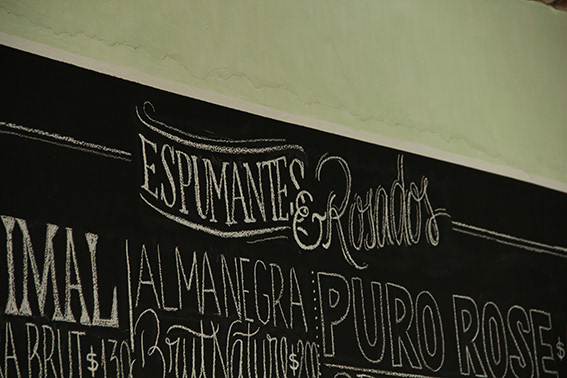 ESPUMANTES & Rosados
IMAL
A BRUT $130
ALMA NEGRA
Brut Nature $
PURO ROSE $